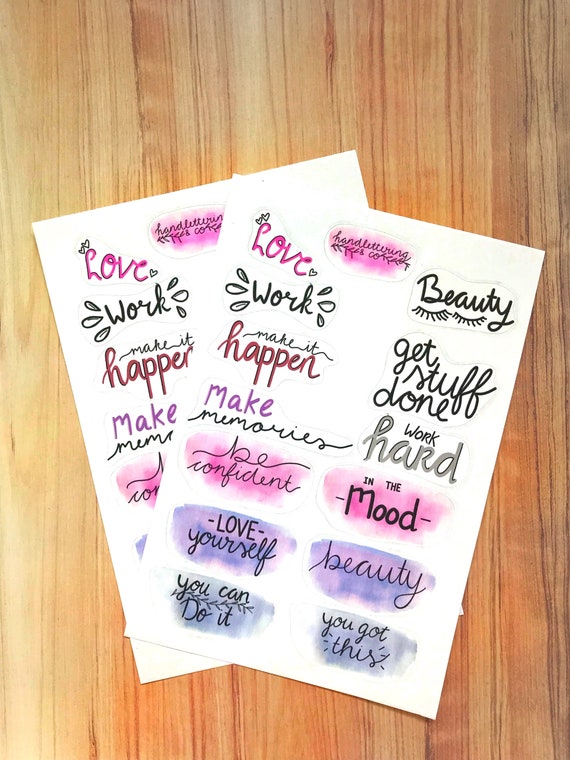 handlettering
& co
Love
Work
make it
happen
Make
memor
con
handlettering
& co
Love
Work
make it
happen
Make
memories
be
confident
-LOVE-
yourself
you can
Do it
Beauty
get
stuff
done
WORK
hard
IN THE
-Mood-
beauty
you got
this